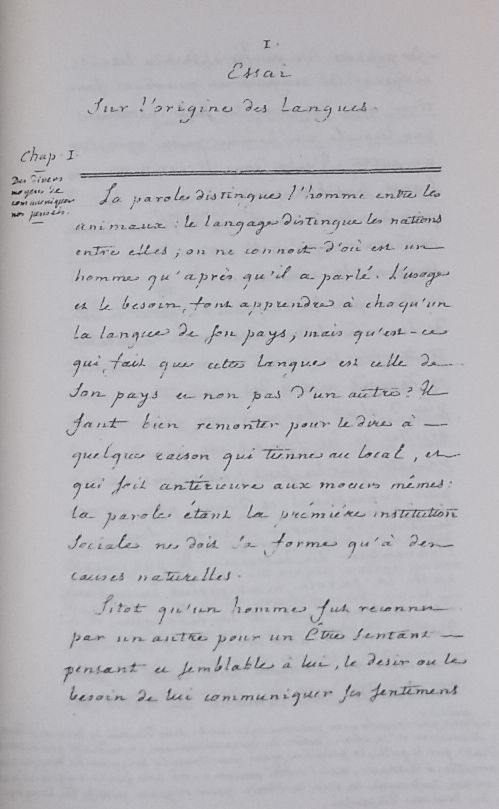 1.
Essai
Sur l'origine des langues.
Chap. I.
Des divers
moyens de
communiquer
nos pensées.
La parole distingue l'homme entre les
animaux : le langage distingue les nations
entre elles ; on ne connoit d'où est un
homme qu'après qu'il a parlé. L'usage
et le besoin font apprendre à chaqu'un
la langue de son pays ; mais qu'est-ce
qui fait que cette langue est celle de
son pays et non pas d'un autre ? Il
faut bien remonter pour le dire à —
quelque raison qui tienne au local, et
qui soit antérieure aux moeurs mêmes :
la parole étant la prémiére institution
sociale ne doit sa forme qu'à des
causes naturelles.
Sitot qu'un homme fut reconnu
par un autre pour un Etre sentant —
pensant et semblable à lui, le desir ou le
besoin de lui communiquer ses sentimens